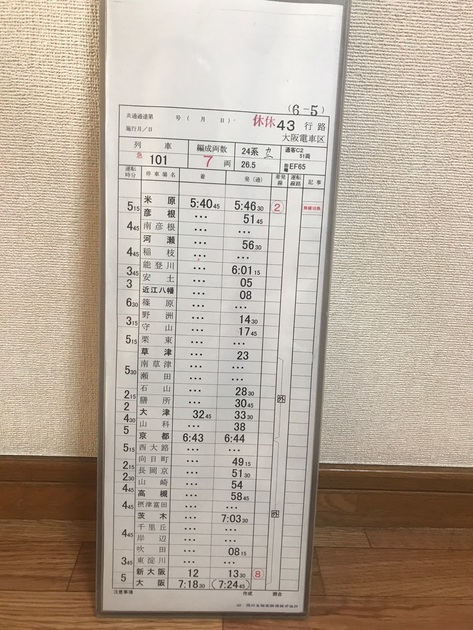 (6-5)
共通通達第　号(　月　日)・ 休休43 行路
施行月／日 大阪電車区
列車 編成両数 24系 通客C2 51両
急 101 7両 26.5 EF65
運転時分 停車場名 着 発(通) 着発線 運転線路 記事
米原 5:40 45 5:46 30 ②
5 15 彦根 … 51 45
南彦根 … …
4 45 河瀬 … 56 30
稲枝 … …
4 45 能登川 … 6:01 15
3 45 安土 … 05
3 近江八幡 … 08
篠原 … …
6 30 野洲 … 14 30
3 15 守山 … 17 45
栗東 … …
5 15 草津 … 23
南草津 … …
瀬田 … …
5 30 石山 … 28 30
2 15 膳所 … 30 45
2 大津 32 45 33 30
4 30 山科 … 38
5 京都 6:43 6:44
西大路 … …
5 15 向日町 … 49 15
2 15 長岡京 … 51 30
2 30 山崎 … 54
4 45 高槻 … 58 45
摂津富田 … …
4 45 茨木 … 7:03 30
千里丘 … …
岸辺 … …
4 45 吹田 … 08 15
東淀川 … …
3 45 新大阪 12 13 30 ⑧
5 大阪 7:18 30 (7:24 45)
注意事項 作成 照合
西日本旅客鉄道株式会社